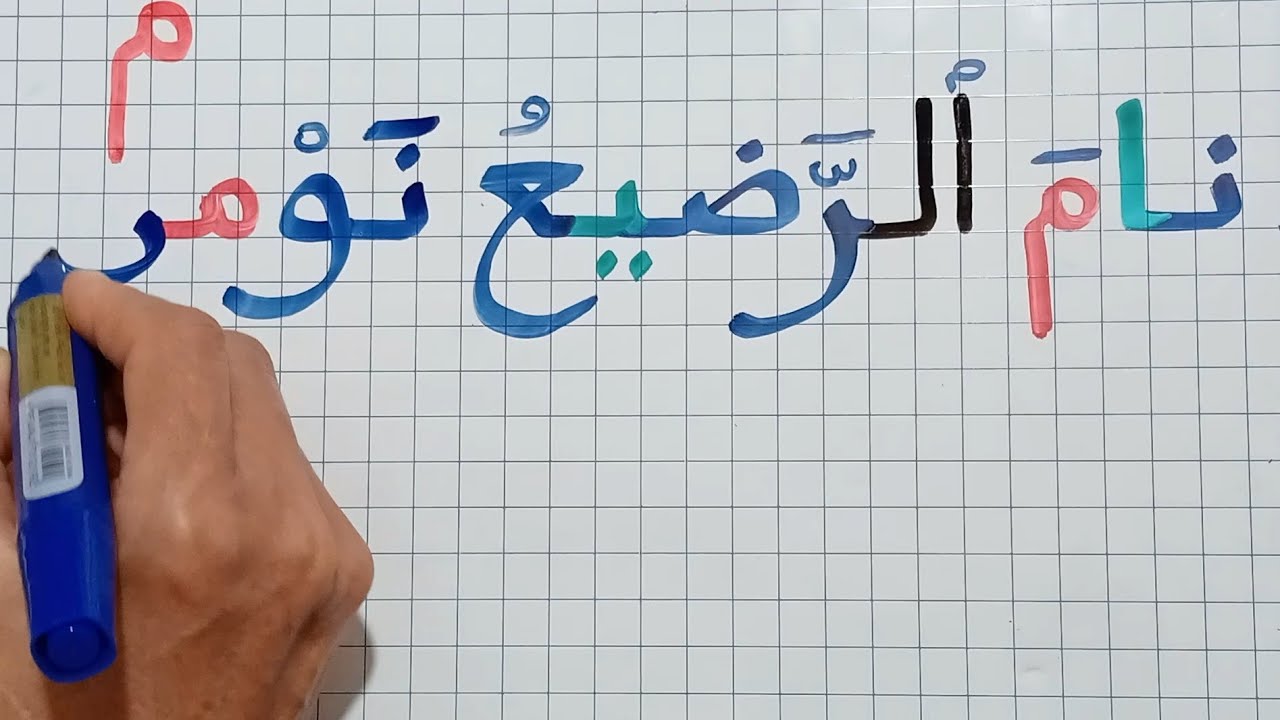 م
نامَ ٱلرَّضيعُ نَوْمر